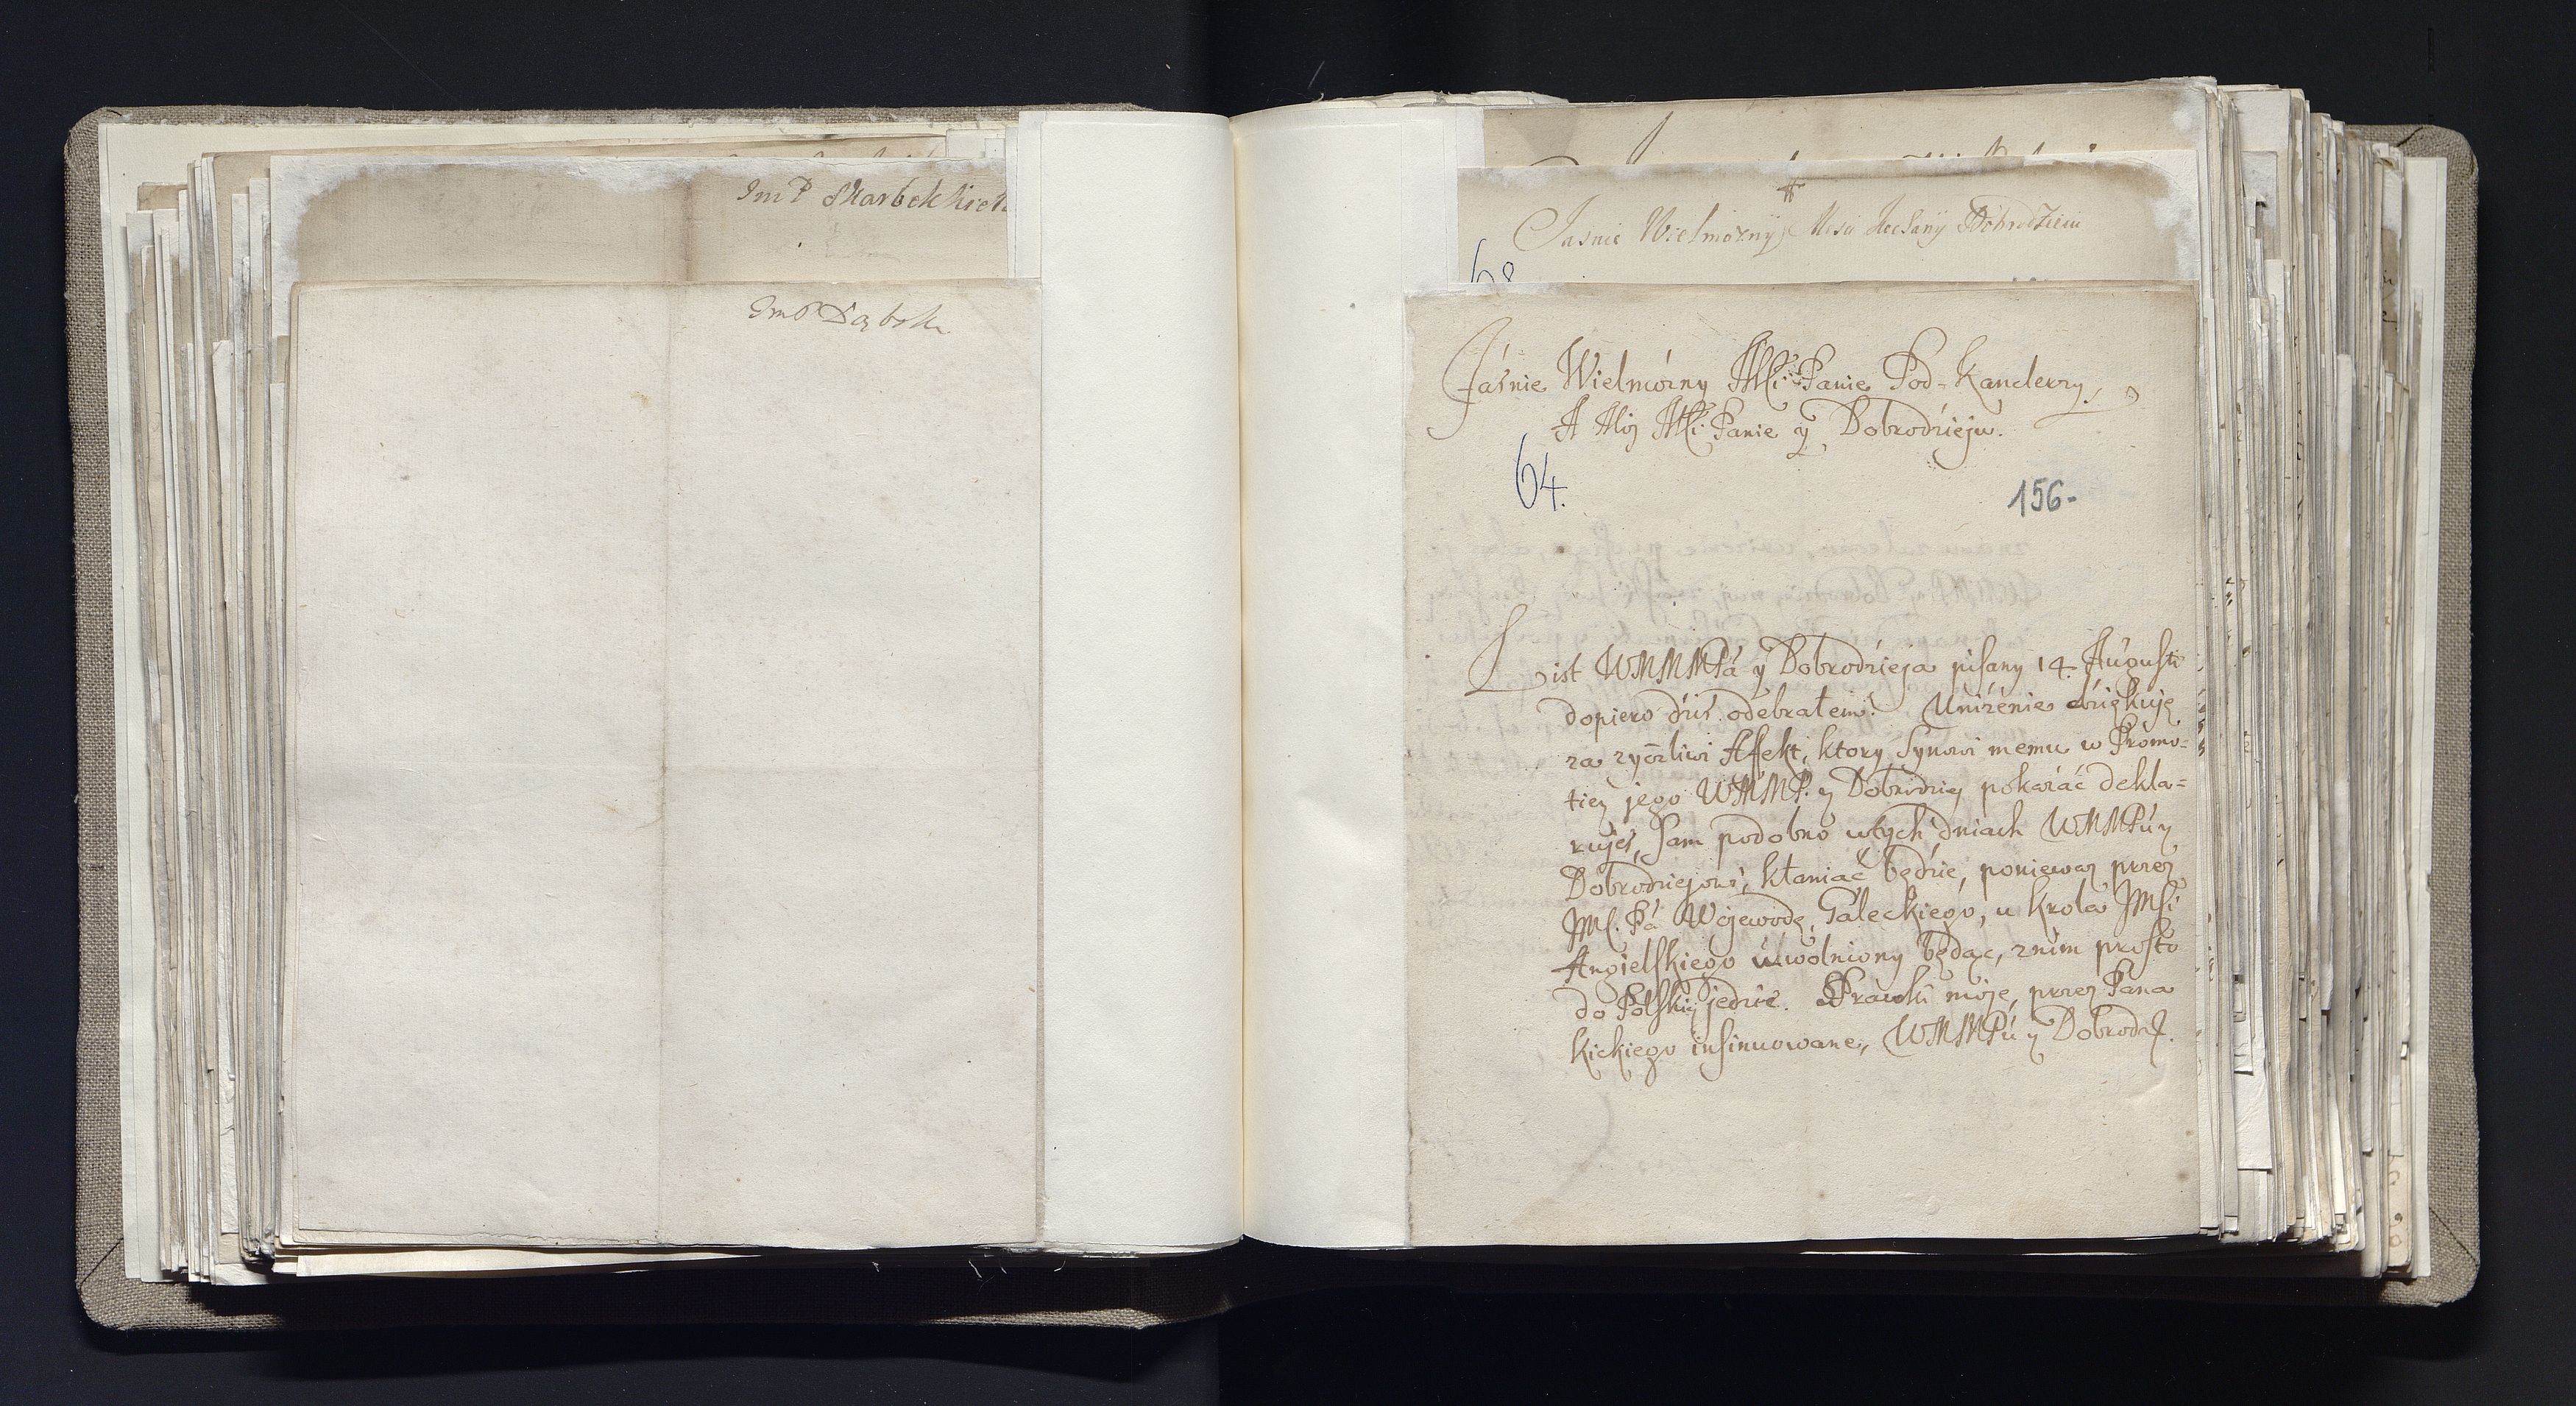 ImP Skarbek Kie
ImP Dąbsk
Jasnie Wielmozny Mosci Dobrodzieiu
68
Jáśnie Wielmożny Mści Panie Pod-Kanclerzy,
A Mój Mści Panie y Dobrodzieju.
64.
156-
List WMMMPá y Dobrodzieja pisany 14. Augusti
dopiero dziś odebrałem. Uniżenie dziękuję
za życzliwi Affekt, ktory Synowi memu w Promo=
tiey jego WMMP. y Dobrodziey pokazáć dekla=
rujes, Sam podobno w tych dniach WMMPu y
Dobrodziejowi, kłaniać będzie, poniewaz przez
JMs. Pá Wojewodę, Gáleckiego, u Krola JMści
Angielskiego uwolniony będąc, z nim prosto
do Polskiy jedzie. Sprawki moje, przez Pana
Kickiego insinuowane, WMMPu y Dobrodz.